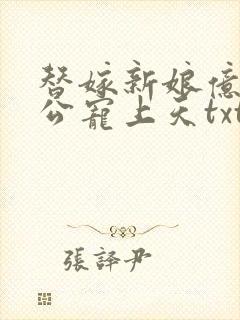 替嫁新娘億
公寵上天txt
張譯尹